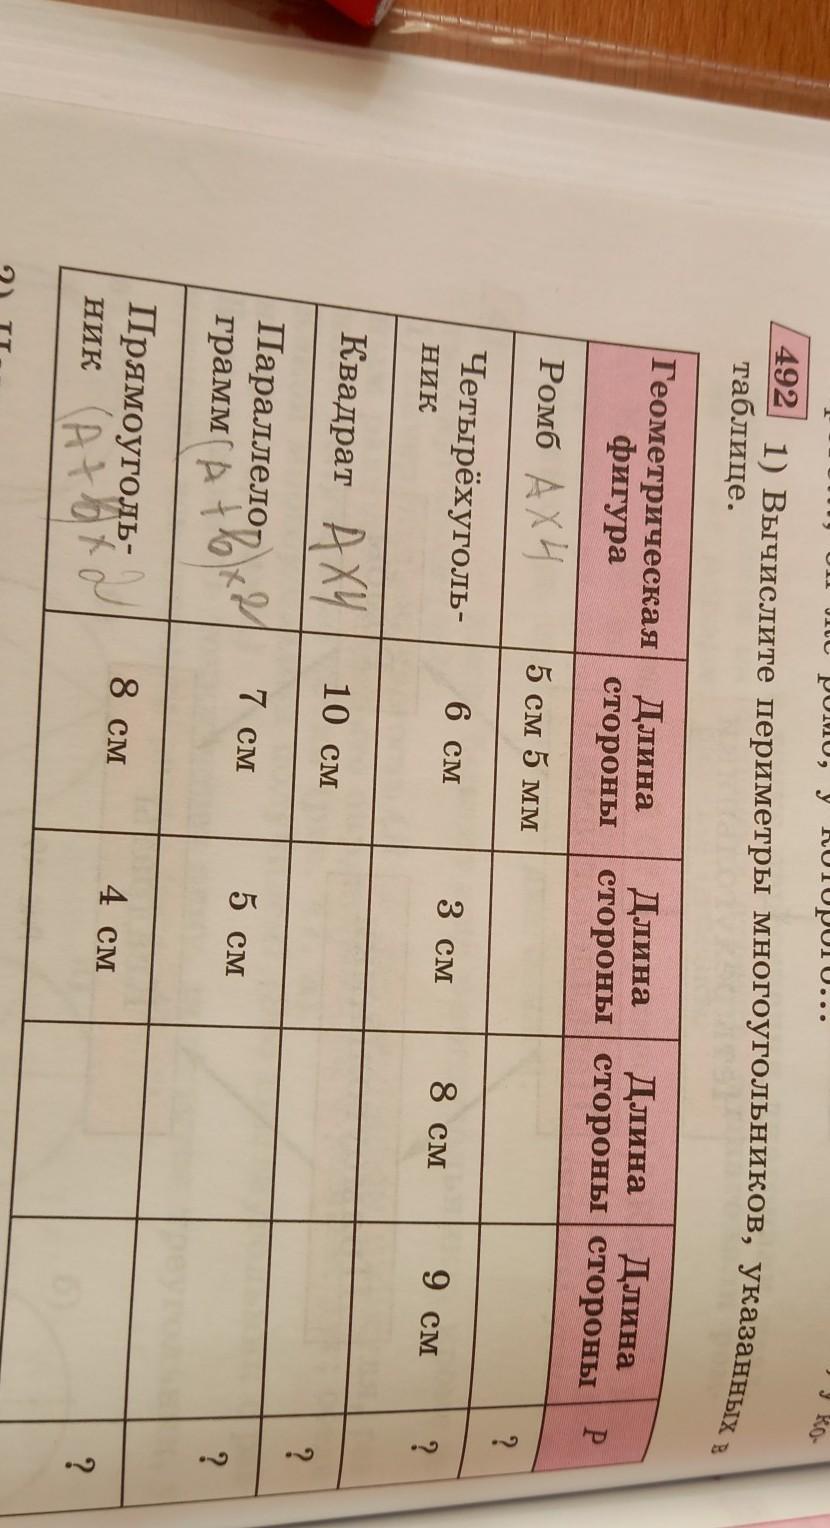 492 1) Вычислите периметры многоугольников, указанных в
таблице.
Геометрическая фигура Длина стороны Длина стороны Длина стороны Длина стороны P
Ромб A×4 5 см 5 мм ?
Четырёхуголь-
ник 6 см 3 см 8 см 9 см ?
Квадрат A×4 10 см ?
Параллело-
грамм (A+b)×2 7 см 5 см ?
Прямоуголь-
ник (A+b)×2 8 см 4 см ?
2)